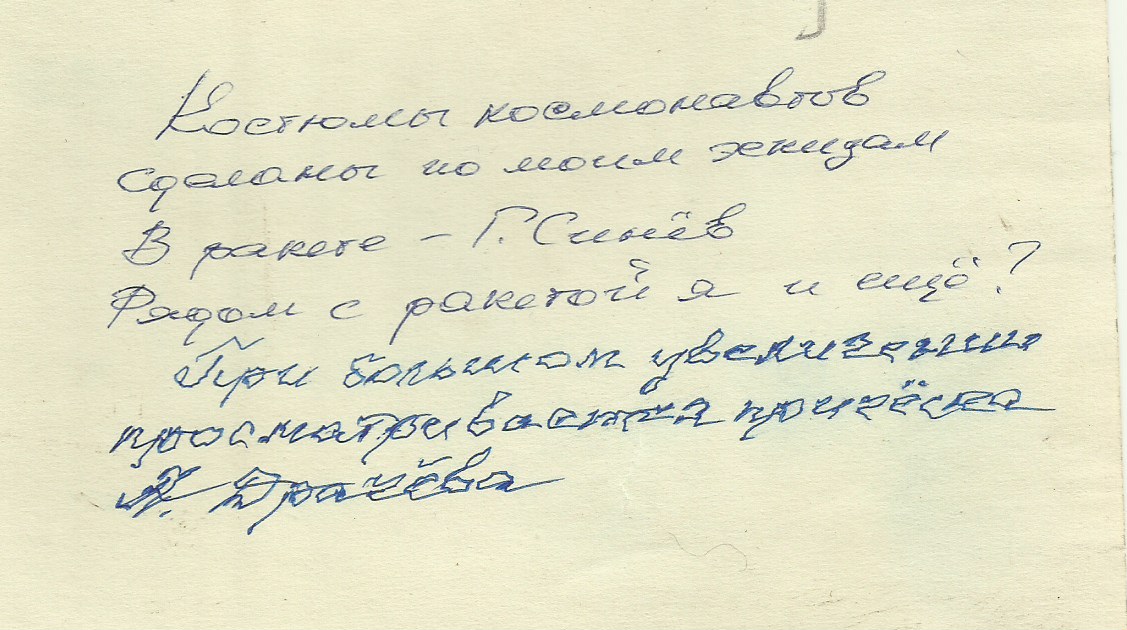 Костюмы космонавтов
сделаны по моим эскизам
В ракете – Г. Синёв
Рядом с ракетой я и ещё ?
При большом увеличении
просматривается причёска
Драчёва